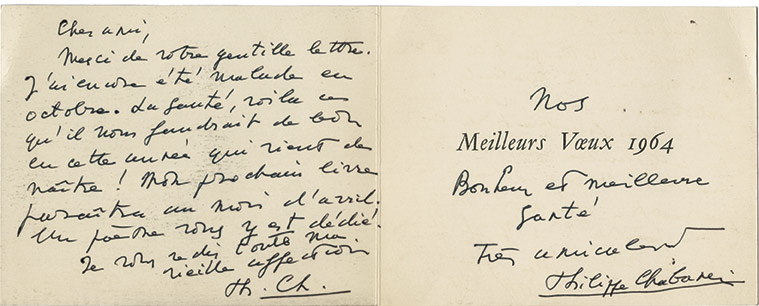 Cher ami,
Merci de votre gentille lettre.
J'ai encore été malade en
octobre. La santé, voila ce
qu'il nous faudrait de bon
en cette année qui vient de
naître ! Mon prochain livre
paraîtra au mois d'avril.
Un poème vous y est dédié.
Je vous redis toute ma
vieille affection
Ph. Ch.
Nos
Meilleurs Vœux 1964
Bonheur et meilleure
santé
Très amicalement
Philippe Chabaneix